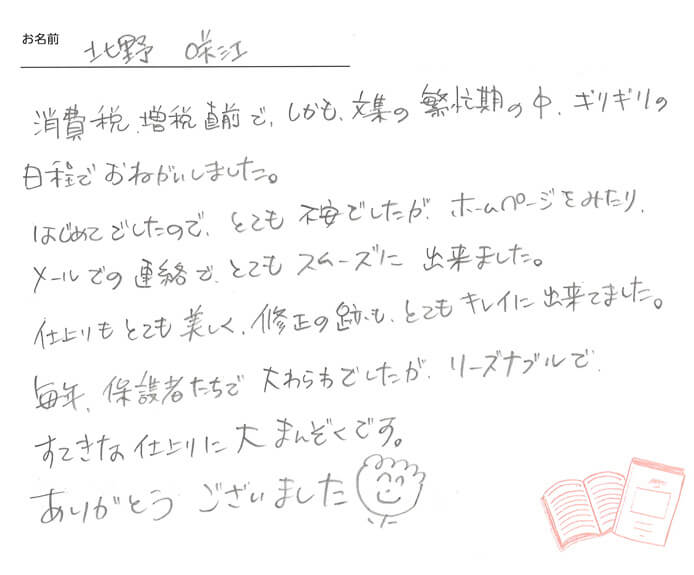 お名前 北野 咲江
消費税、増税直前で、しかも、文集の繁忙期の中、ギリギリの
日程でおねがいしました。
はじめてでしたので、とても不安でしたが、ホームページをみたり、
メールでの連絡で、とてもスムーズに出来ました。
仕上りもとても美しく、修正の跡も、とてもキレイに出来てました。
毎年、保護者たちで大わらわでしたが、リーズナブルで、
すてきな仕上りに大まんぞくです。
ありがとうございました